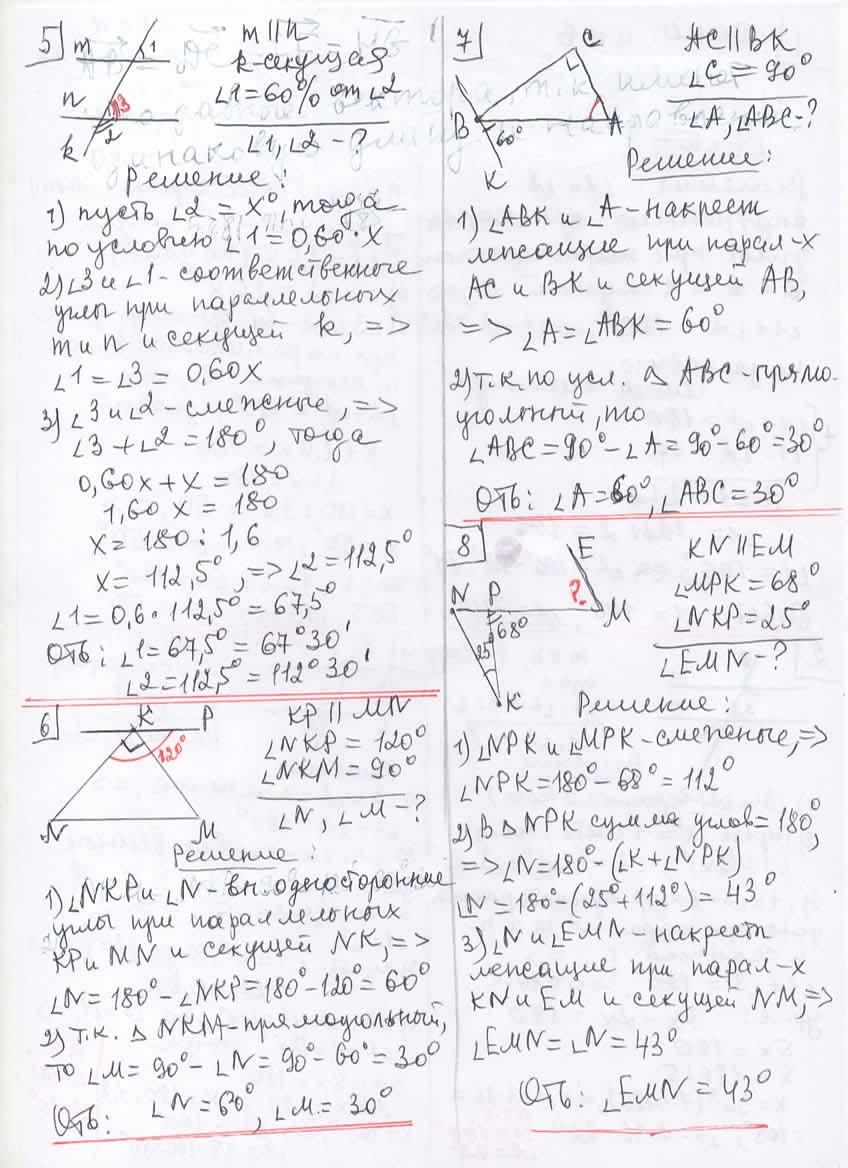 5
m
1
n
3
2
k
m || n
k-секущая
∠1=60% от ∠2
∠1, ∠2 - ?
Решение:
1) пусть ∠2 = x°, тогда
по условию ∠1=0,60·x
2) ∠3 и ∠1-соответственные
углы при параллельных
m и n и секущей k, =>
∠1=∠3= 0,60x
3) ∠3 и ∠2-смежные, =>
∠3+∠2=180°, тогда
0,60x+x = 180
1,60x = 180
x= 180:1,6
x= 112,5°, => ∠2=112,5°
∠1=0,6·112,5°=67,5°
Отв: ∠1=67,5°=67°30'
∠2=112,5°=112°30'
6
K P
120°
N M
KP || MN
∠NKP = 120°
∠NKM = 90°
∠N, ∠M - ?
Решение:
1) ∠NKP и ∠N-вн.односторонние
углы при параллельных
KP и MN и секущей NK, =>
∠N=180°-∠NKP=180°-120°=60°
2) т.к. △ NKM-прямоугольный,
то ∠M=90°-∠N=90°-60°=30°
Отв: ∠N=60°, ∠M=30°
7
C
B A
60°
K
AC || BK
∠C = 90°
∠A, ∠ABC-?
Решение:
1) ∠ABK и ∠A-накрест
лежащие при парал-х
AC и BK и секущей AB,
=> ∠A=∠ABK=60°
2) т.к. по усл. △ ABC-прямо-
угольный, то
∠ABC=90°-∠A=90°-60°=30°
Отв: ∠A=60°, ∠ABC=30°
8
E
N P ? M
68°
25
K
KN || EM
∠MPK=68°
∠NKP=25°
∠EMN-?
Решение:
1) ∠NPK и ∠MPK-смежные, =>
∠NPK=180°-68°=112°
2) В △ NPK сумма углов=180°,
=> ∠N=180°-(∠K+∠NPK)
∠N=180°-(25°+112°)=43°
3) ∠N и ∠EMN-накрест
лежащие при парал-х
KN и EM и секущей NM, =>
∠EMN=∠N=43°
Отв: ∠EMN=43°